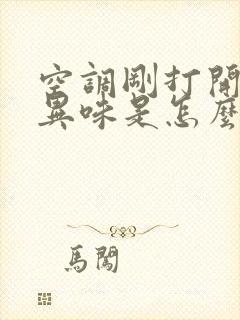 空調剛打開
異味是怎麼
馬闖